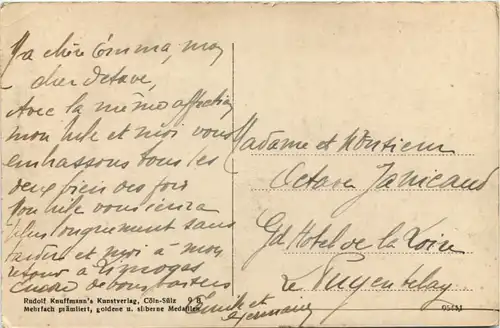 Ma chère Emma, mon
cher Octave,
Avec la même affection
mon et moi vous
embrassons tous les
deux bien des fois
Mon vous
plus longuement sans
tarder et moi à mon
retour à Limoges
de bons baisers
et
Germaine
Madame et Monsieur
Octave Janicaud
Gd Hotel de la Loire
Le Puy en Velay
Rudolf Knuffmann's Kunstverlag, Cöln-Sülz 9 B
Mehrfach prämiiert, goldene u. silberne Medaillen